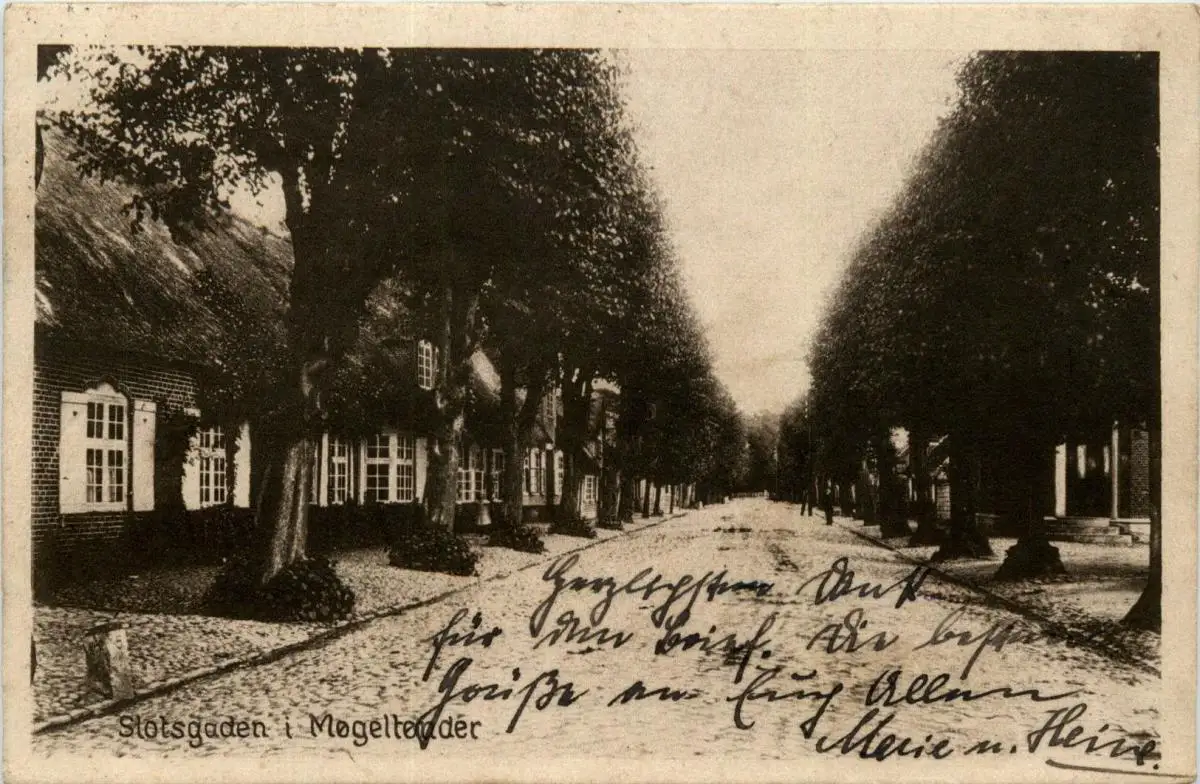 Herzlichsten Dank
für den Brief. Die besten
Grüße an Euch Allen
Marie u. Heine.
Slotsgaden i Møgeltønder